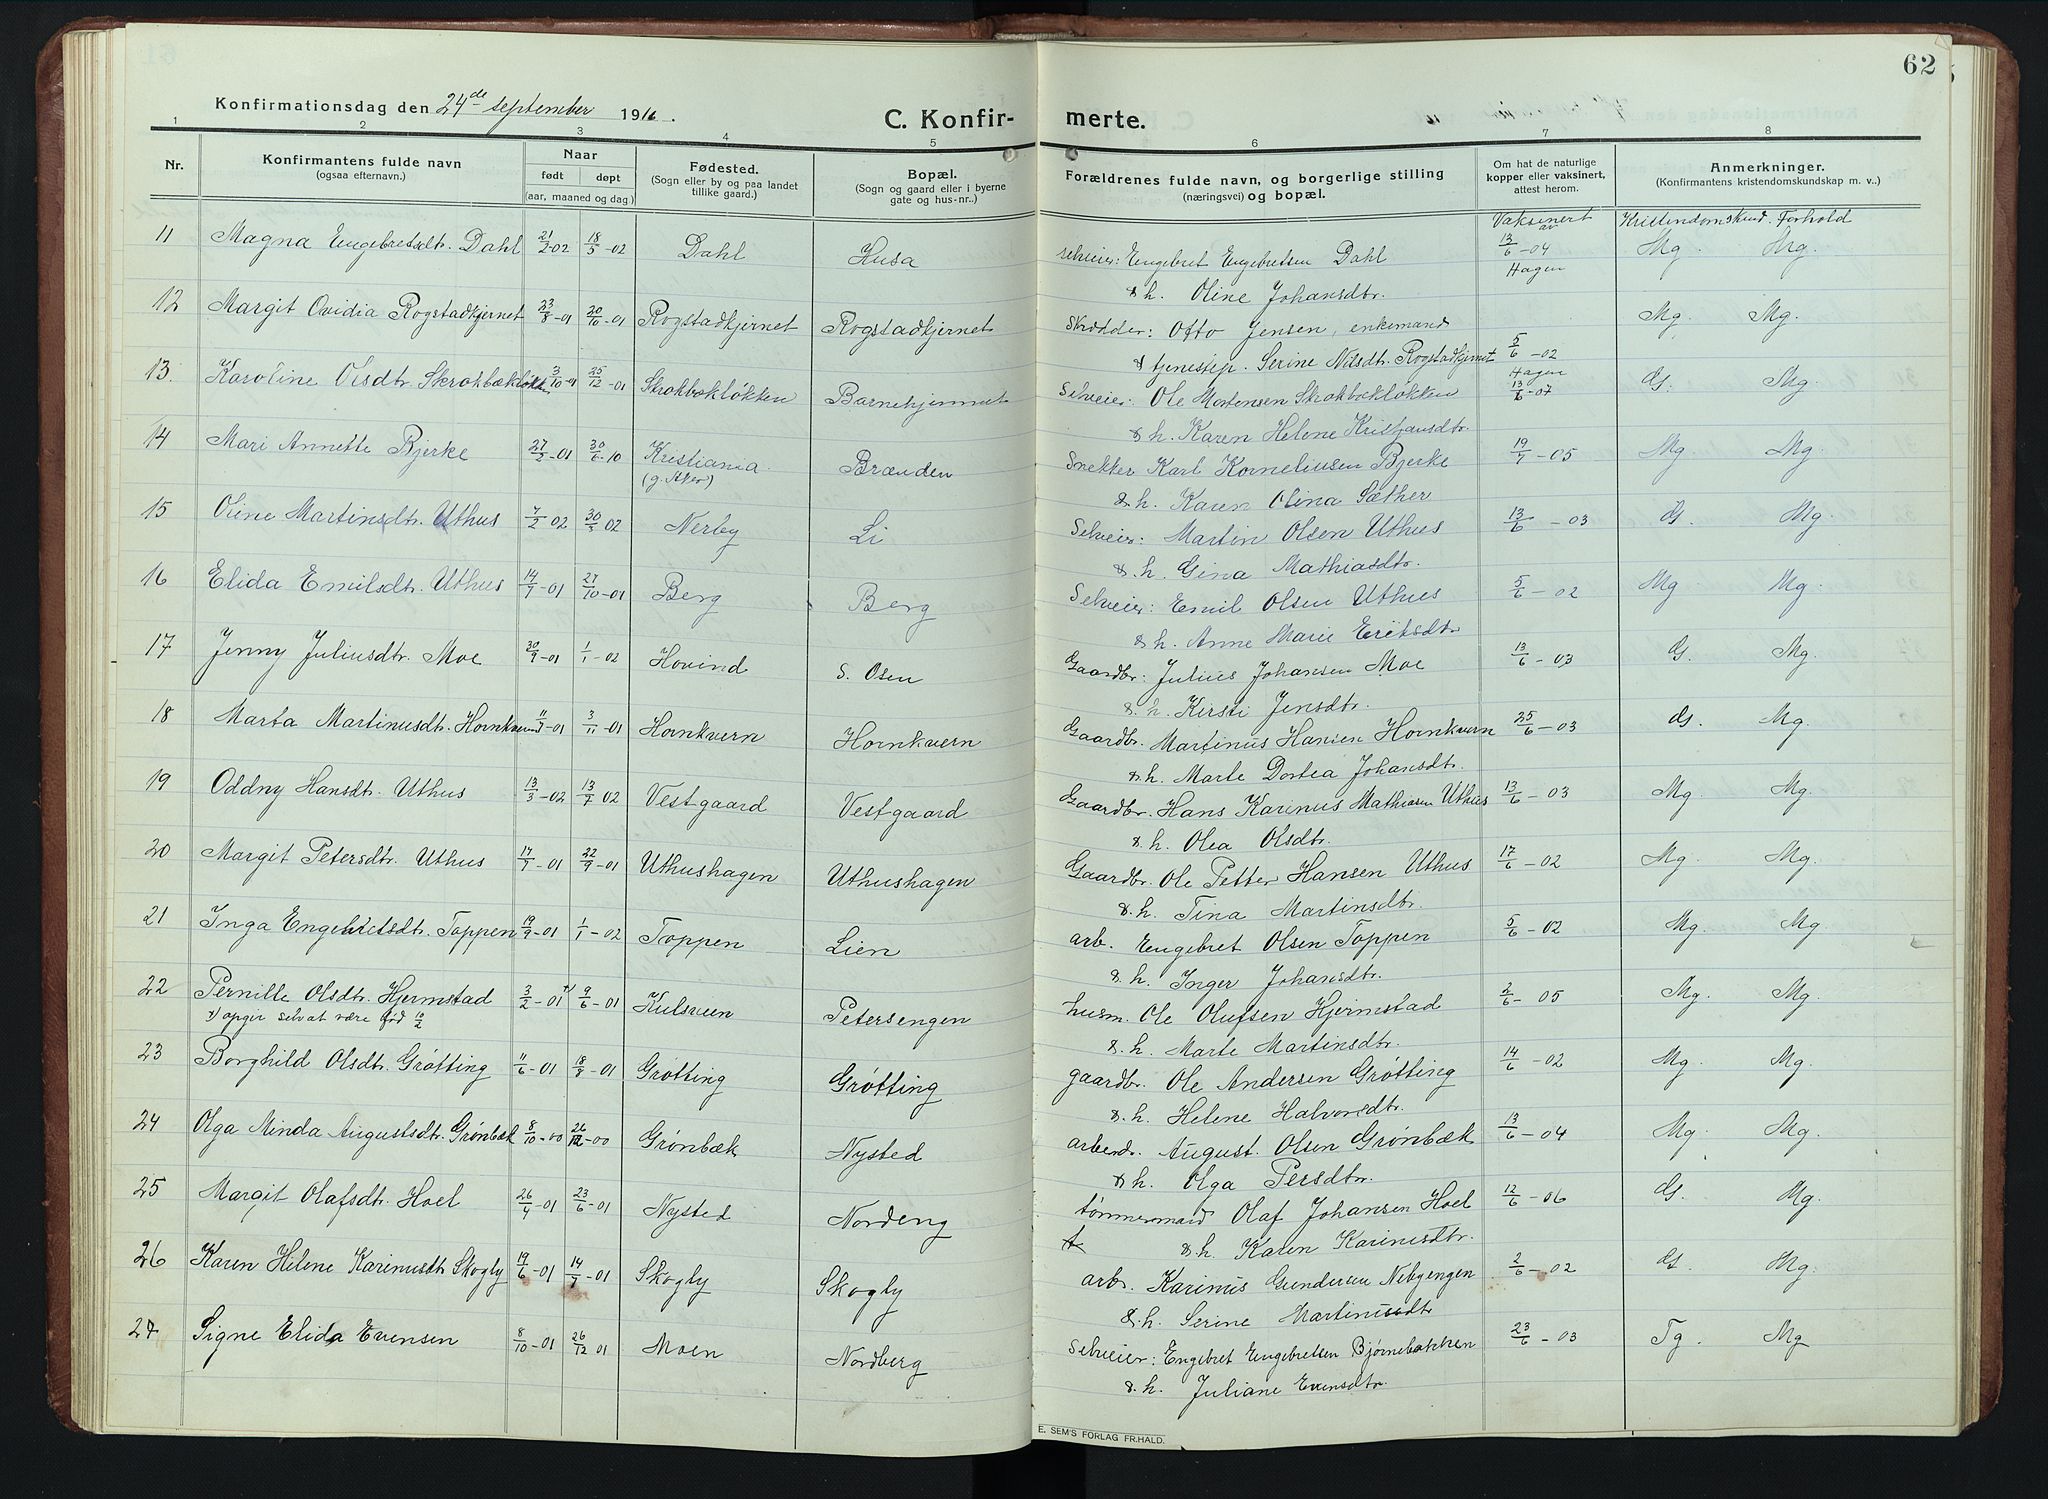 62
Konfirmationsdag den 24de september 1916.
C. Konfir- merte.
1 2 3 4 5 6 7 8
Nr. Konfirmantens fulde navn (ogsaa efternavn.) Naar født døpt (aar, maaned og dag) Fødested. (Sogn eller by og paa landet tillike gaard.) Bopæl. (Sogn og gaard eller i byerne gate og hus-nr..) Forældrenes fulde navn, og borgerlige stilling (næringsvei) og bopæl. Om hat de naturlige kopper eller vaksinert, attest herom. Anmerkninger. (Konfirmantens kristendomskundskap m. v.,)
Vaksinert av Kristendomskund. Forhold
11 Magna Engebretsdtr. Dahl 21/2-02 18/5-02 Dahl Husa selveier: Engebret Engebretsen Dahl 13/6-04 Hagen Mg. Mg.
& h. Oline Johansdtr.
12 Margit Ovidia Rogstadkjernet 23/8-01 20/10-01 Rogstadkjernet Rogstadkjernet Skrædder: Otto Jensen, enkemand Mg. Mg.
& tjenestep. Serine Nilsdtr. Rogstadkjernet 5/6-02 Hagen
13. Karoline Olsdtr. Skrokbækløkk 3/10-01 25/12-01 Skrokbækløkken Barnehjemmet Selveier: Ole Mortensen Skrokbækløkken 13/6-07 G. Mg.
& h. Karen Helene Kristjansdtr.
14 Mari Annette Bjerke 27/2-01 30/6-10 Kristiania (g. Aker) Brænden Snekker Karl Korneliusen Bjerke 19/7-05 Mg. Mg.
& h. Karen Olina Sæther
15 Oline Martinsdtr. Uthus 7/2 02 30/3 02 Nerby Li Selveier: Martin Olsen Uthus 13/6-03 G. Mg.
& h. Gina Mathiasdtr.
16 Elida Emilsdtr. Uthus 14/7-01 27/10-01 Berg Berg Selveier: Emil Olsen Uthus 5/6-02 Mg Mg.
& h. Anne Marie Eriksdtr
17 Jenny Juliusdtr. Moe 20/9-01 1/1-02 Hovind S. Osen Gaardbr: Julius Johansen Moe 13/6-03 G. Mg.
& h. Kersti Jensdtr.
18 Marta Martinusdtr. Hornkvern 11/7-01 3/11-01 Hornkvern Hornkvern Gaardbr. Martinus Hansen Hornkvern 25/6-03 G. Mg.
& h. Marte Dortea Johansdtr.
19 Oddny Hansdtr. Uthus 13/3-02 13/7 02 Vestgaard Vestgaard Gaardbr. Hans Karinus Mathiasen Uthus 13/6-03 Mg. Mg.
& h. Olea Olsdtr.
20 Margit Petersdtr. Uthus 17/7-01 22/9-01 Uthushagen Uthushagen Gaardbr. Ole Petter Hansen Uthus 17/6-02 Mg. Mg.
& h. Tina Martinsdtr.
21 Inga Engebretsdtr. Toppen 19/9-01 1/1-02 Toppen Lien arb. Engebret Olsen Toppen 5/6-02 Mg. Mg.
& h. Inger Johansdtr.
22 Pernille Olsdtr. Hjermstad 3/2-01 x) 9/6-01 Kulsveen Petersengen husm. Ole Olufsen Hjermstad 2/6-05 Mg. Mg.
x) opgir selv at være fød 10/2 & h. Marte Martinsdtr.
23 Borghild Olsdtr. Grøtting 11/6-01 18/8-01 Grøtting Grøtting gaardbr. Ole Andersen Grøtting 14/6-02 Mg. Mg.
& h. Helene Halvorsdtr.
24 Olga Minda Augustsdtr. Grønbæk 8/10-00 26/12-00 Grønbæk Nysted arbeid. August Olsen Grønbæk 13/6-04 Mg. Mg.
& h. Olga Persdtr.
25 Margit Olafsdtr. Hoel 26/4-01 23/6-01 Nysted Nordeng tømmermand Olaf Johansen Hoel 12/6-06 G. Mg.
& h. Karen Karinusdtr.
26 Karen Helene Karinusdtr. Skogly 19/6-01 14/7-01 Skogly Skogly arb. Karinus Gundersen Nebyengen 2/6-02 G. Mg.
& h. Serine Martinusdtr
27 Signe Elida Evensen 8/10-01 26/12 01 Moen Nordberg Selveier: Engebret Engebretsen Bjørnebakken 23/6-03 Tg. Mg
& h. Juliane Evensdtr.
E. SEM'S FORLAG FR.HALD.